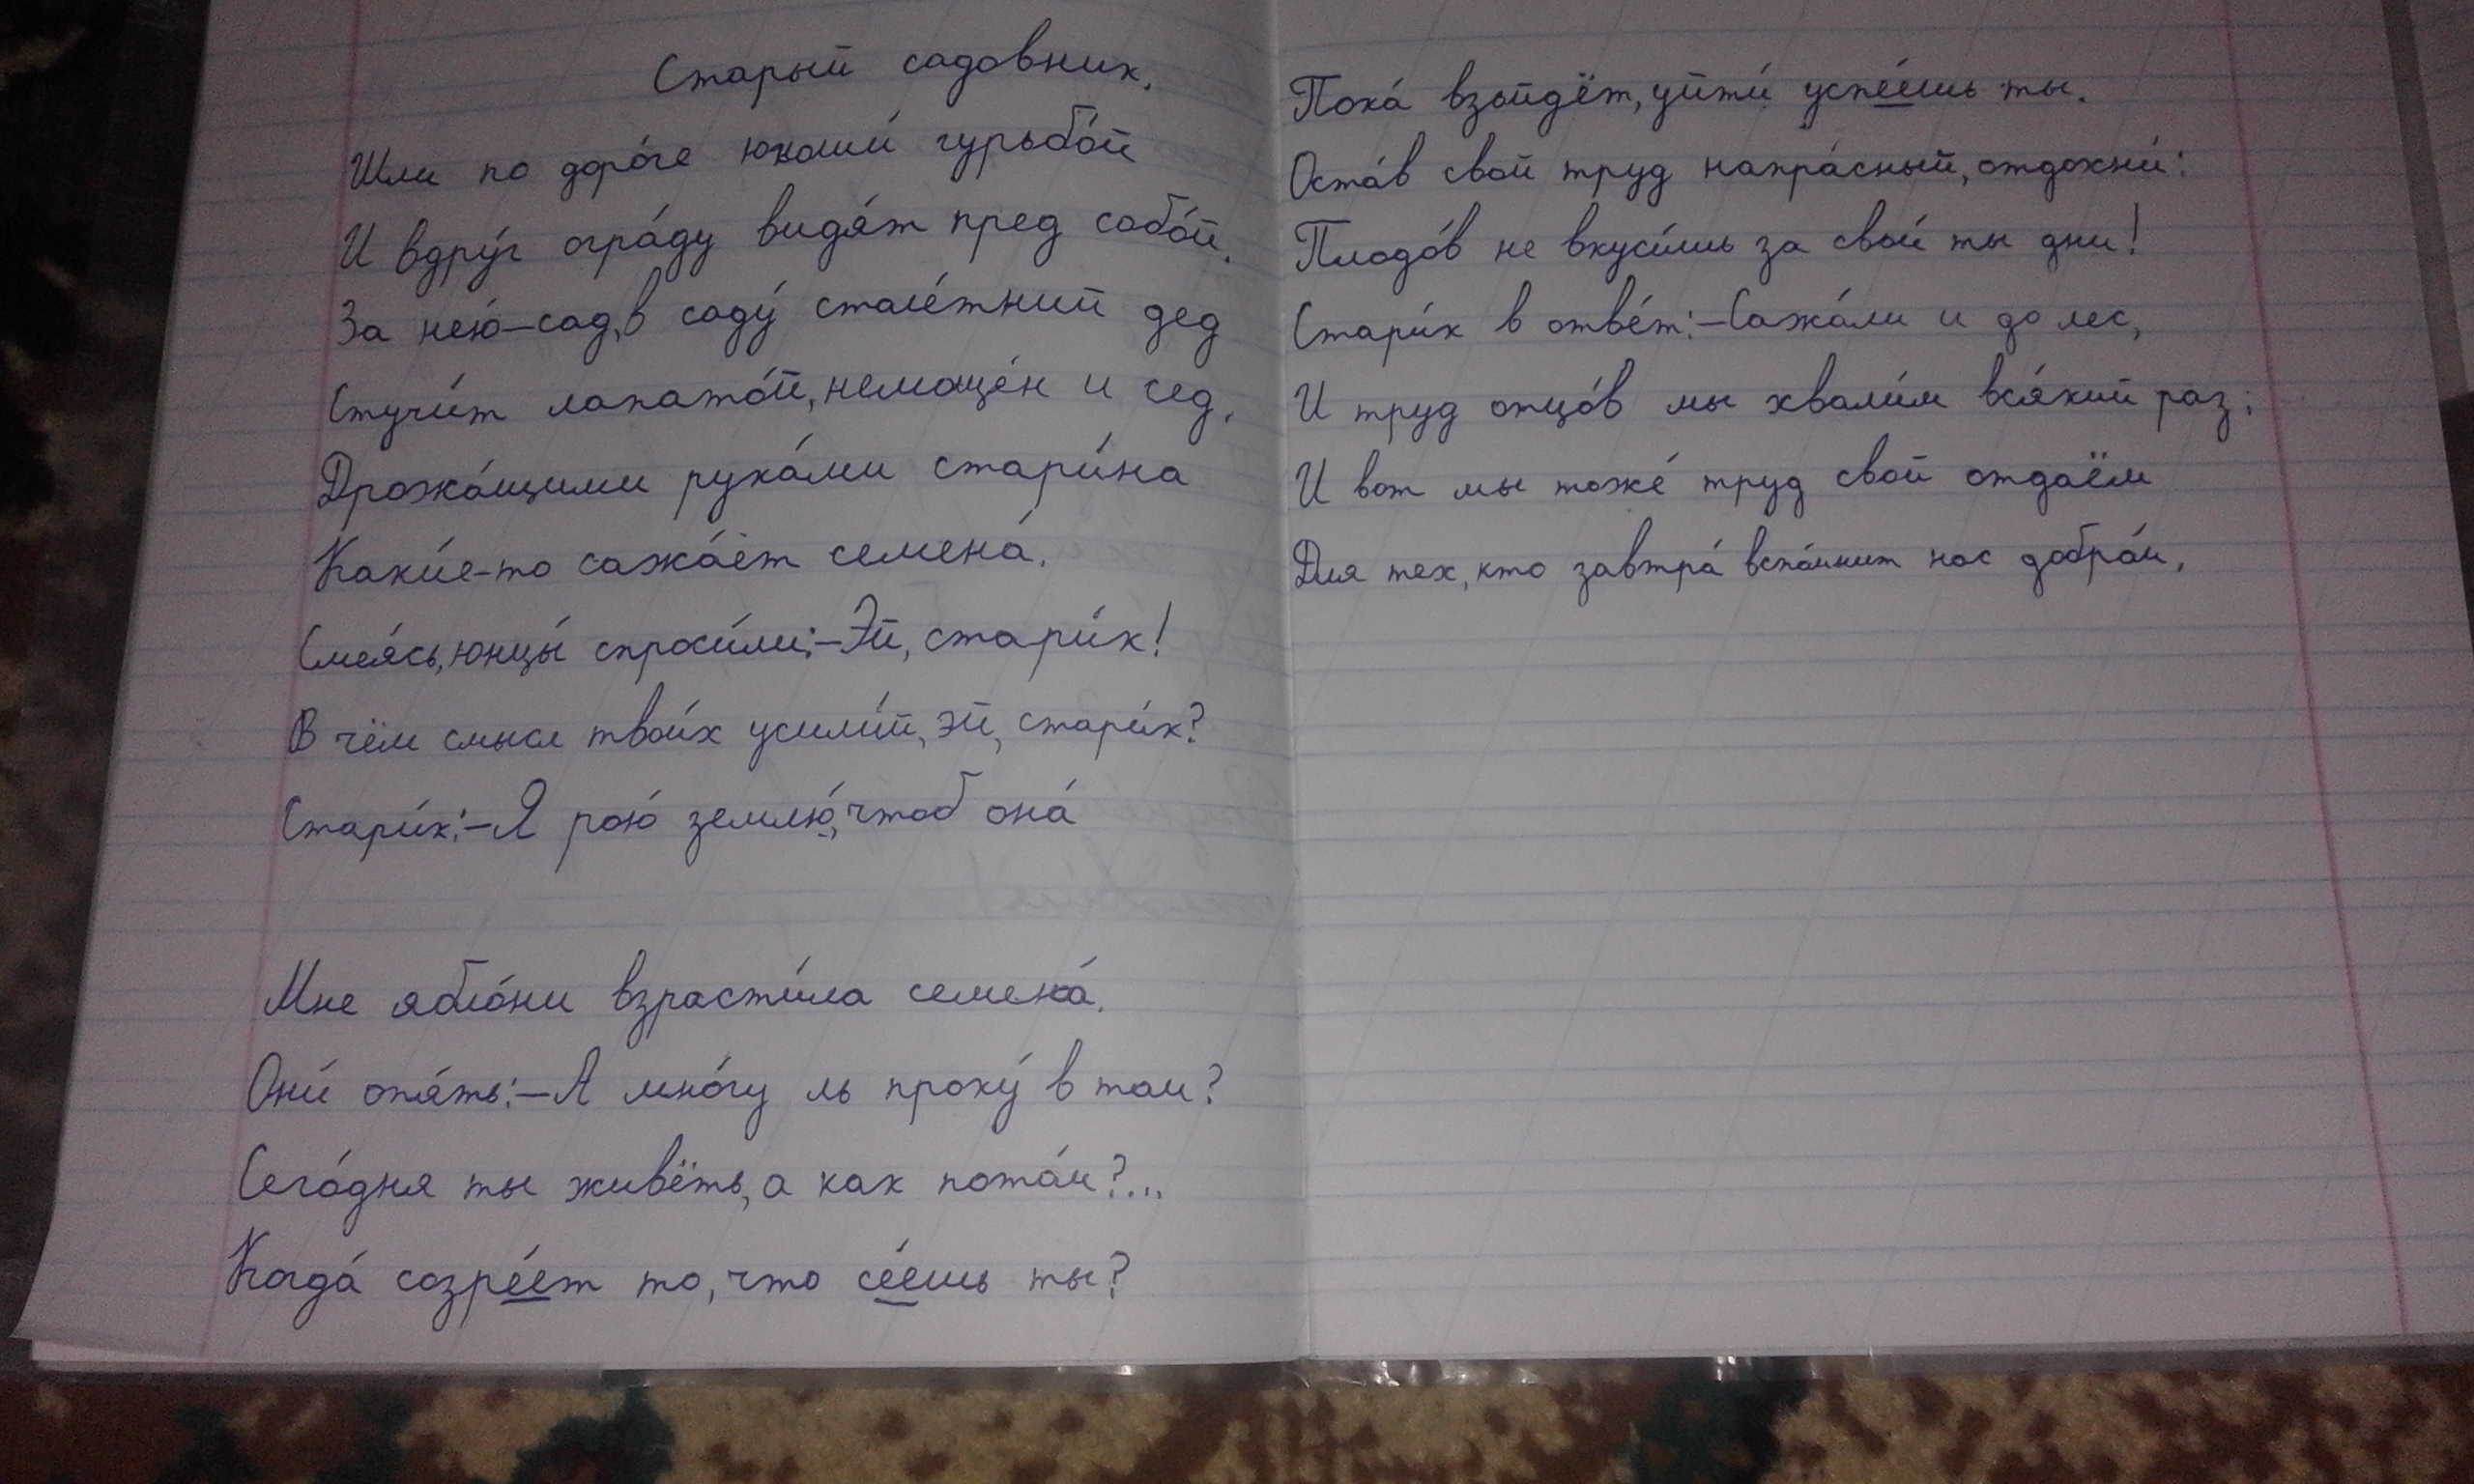 Старый садовник.
Шли по доро́ге юноши́ гурьбо́й
И вдру́г огра́ду видя́т пред собо́й.
За не́ю́-сад, в саду́ столе́тний дед
Стучи́т лопато́й, немоще́н и сед.
Дрожа́щими рука́ми стари́на
Каки́е-то сажа́ет семена́.
Смея́сь, юнцы́ спроси́ли:-Эй, стари́к!
В чём смысл твои́х усили́й, эй, стари́к?
Стари́к:-Я рою́ землю́, чтоб она́
Мне ябло́ни взрасти́ла семена́.
Они́ опя́ть:-А мно́гу ль проку́ в том?
Сего́дня ты живёть, а как пото́м?...
Когда́ созре́ет то, что се́ешь ты?
Пока́ взойдёт, уйти́ успе́ешь ты.
Оста́в свой труд напра́сный, отдохни́:
Плодо́в не вкуси́шь за свои́ ты дни!
Стари́к в отве́т:-Сажа́ли и до нас,
И труд отцо́в мы хвали́м вся́кий раз;
И вот мы тоже́ труд свой отдаём
Для тех, кто завтра́ вспо́мнит нас добро́м.